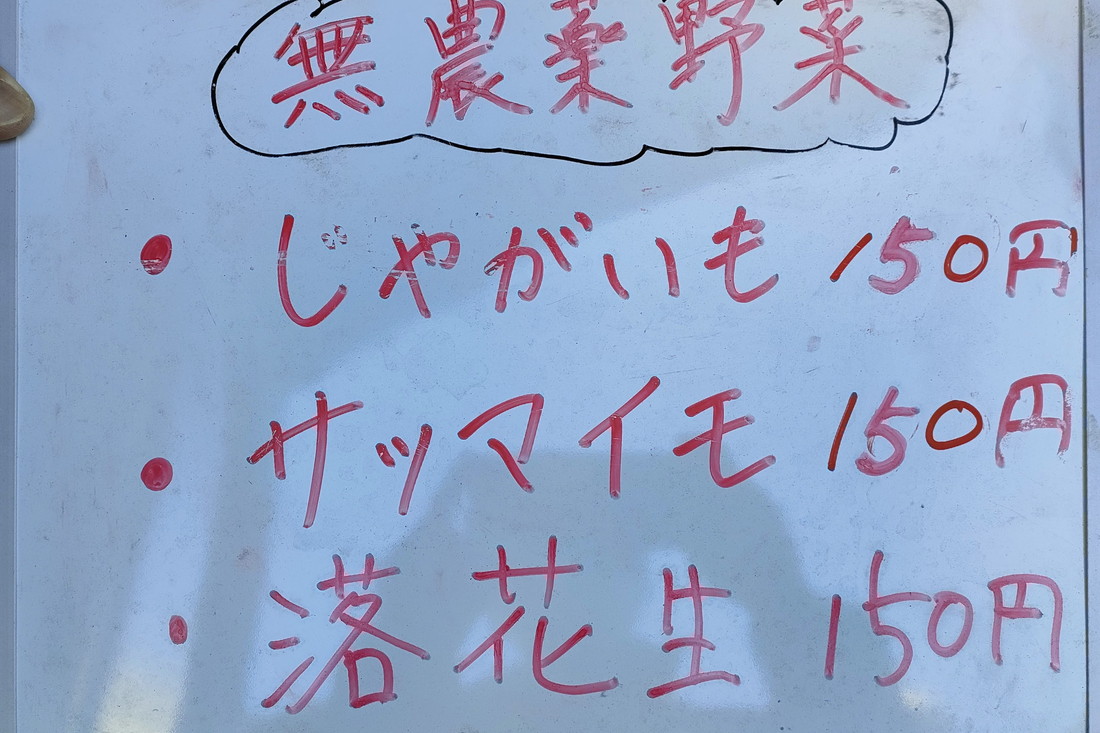 無農薬野菜
・じゃがいも 150円
・サツマイモ 150円
・落花生 150円